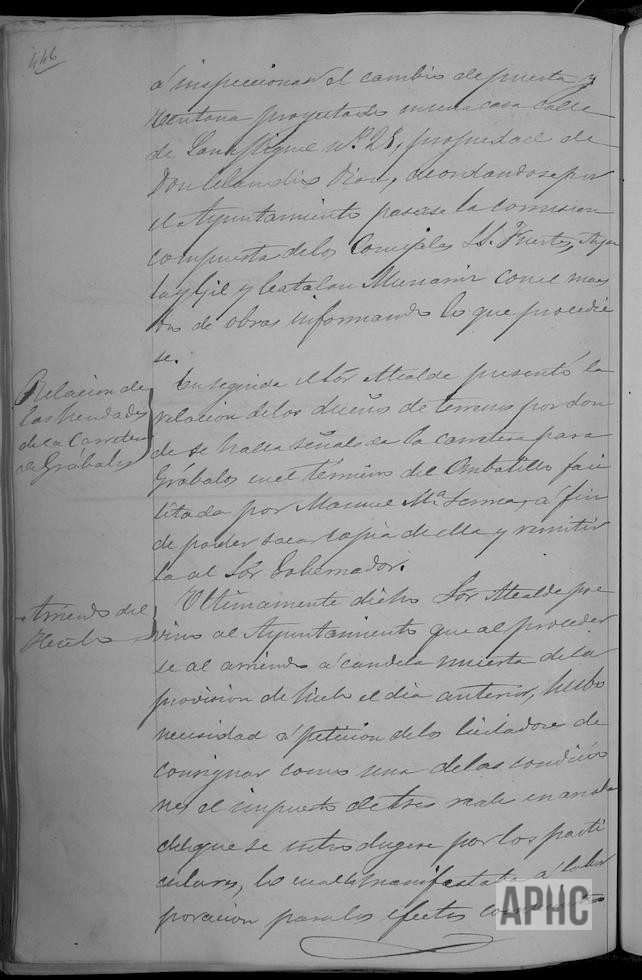 446
á inspeccionar el cambio de puerta y
Ventana proyectado en una casa calle
de San Miguel nº 28, propiedad de
Don Claudio Diaz, acordandose por
el Ayuntamiento pasarse la comision
compuesta de los Concejales SS. Fuertes,
y Gil y Catalan con el maes
tro de obras informando lo que procedie
se.
Relacion de
las heredades
de la Carretera
de Grábalos
En seguida el Sor Alcalde presentó la
relacion de los dueños de terrenos por don
de se halla señalada la carretera para
Grábalos en el término del Ombatillo faci
litada por Manuel Mª á fin
de poder sacar copia de ella y remitir
la al Sor Gobernador.
Arriendo del
Hielo
Ultimamente dicho Sor Alcalde pre
vino al Ayuntamiento que al proceder
se al arriendo á candela muerta de la
provision de hielo el dia anterior, hubo
necesidad á peticion de los licitadores de
consignar como una de las condicio
nes el impuesto de tres reales en arroba
del que se introdugere por los parti
culares, lo cual manifestaba á la Cor
poracion para los efectos
APHC